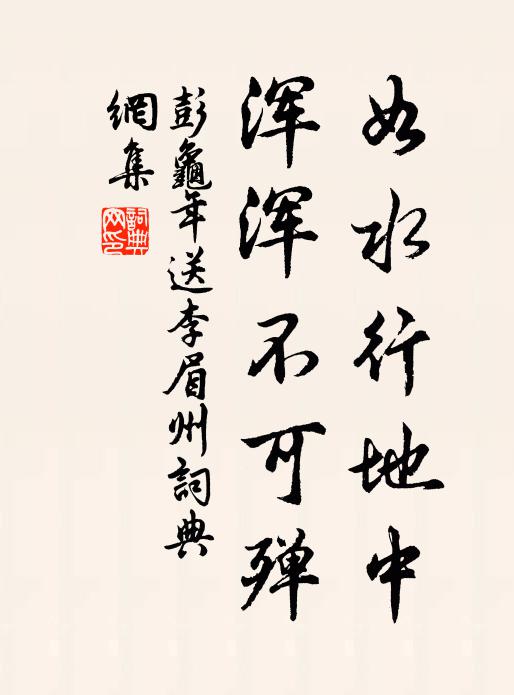 如水行地中
浑浑不可殚
彭龜年送李眉州詞典
網集
詞典
网印